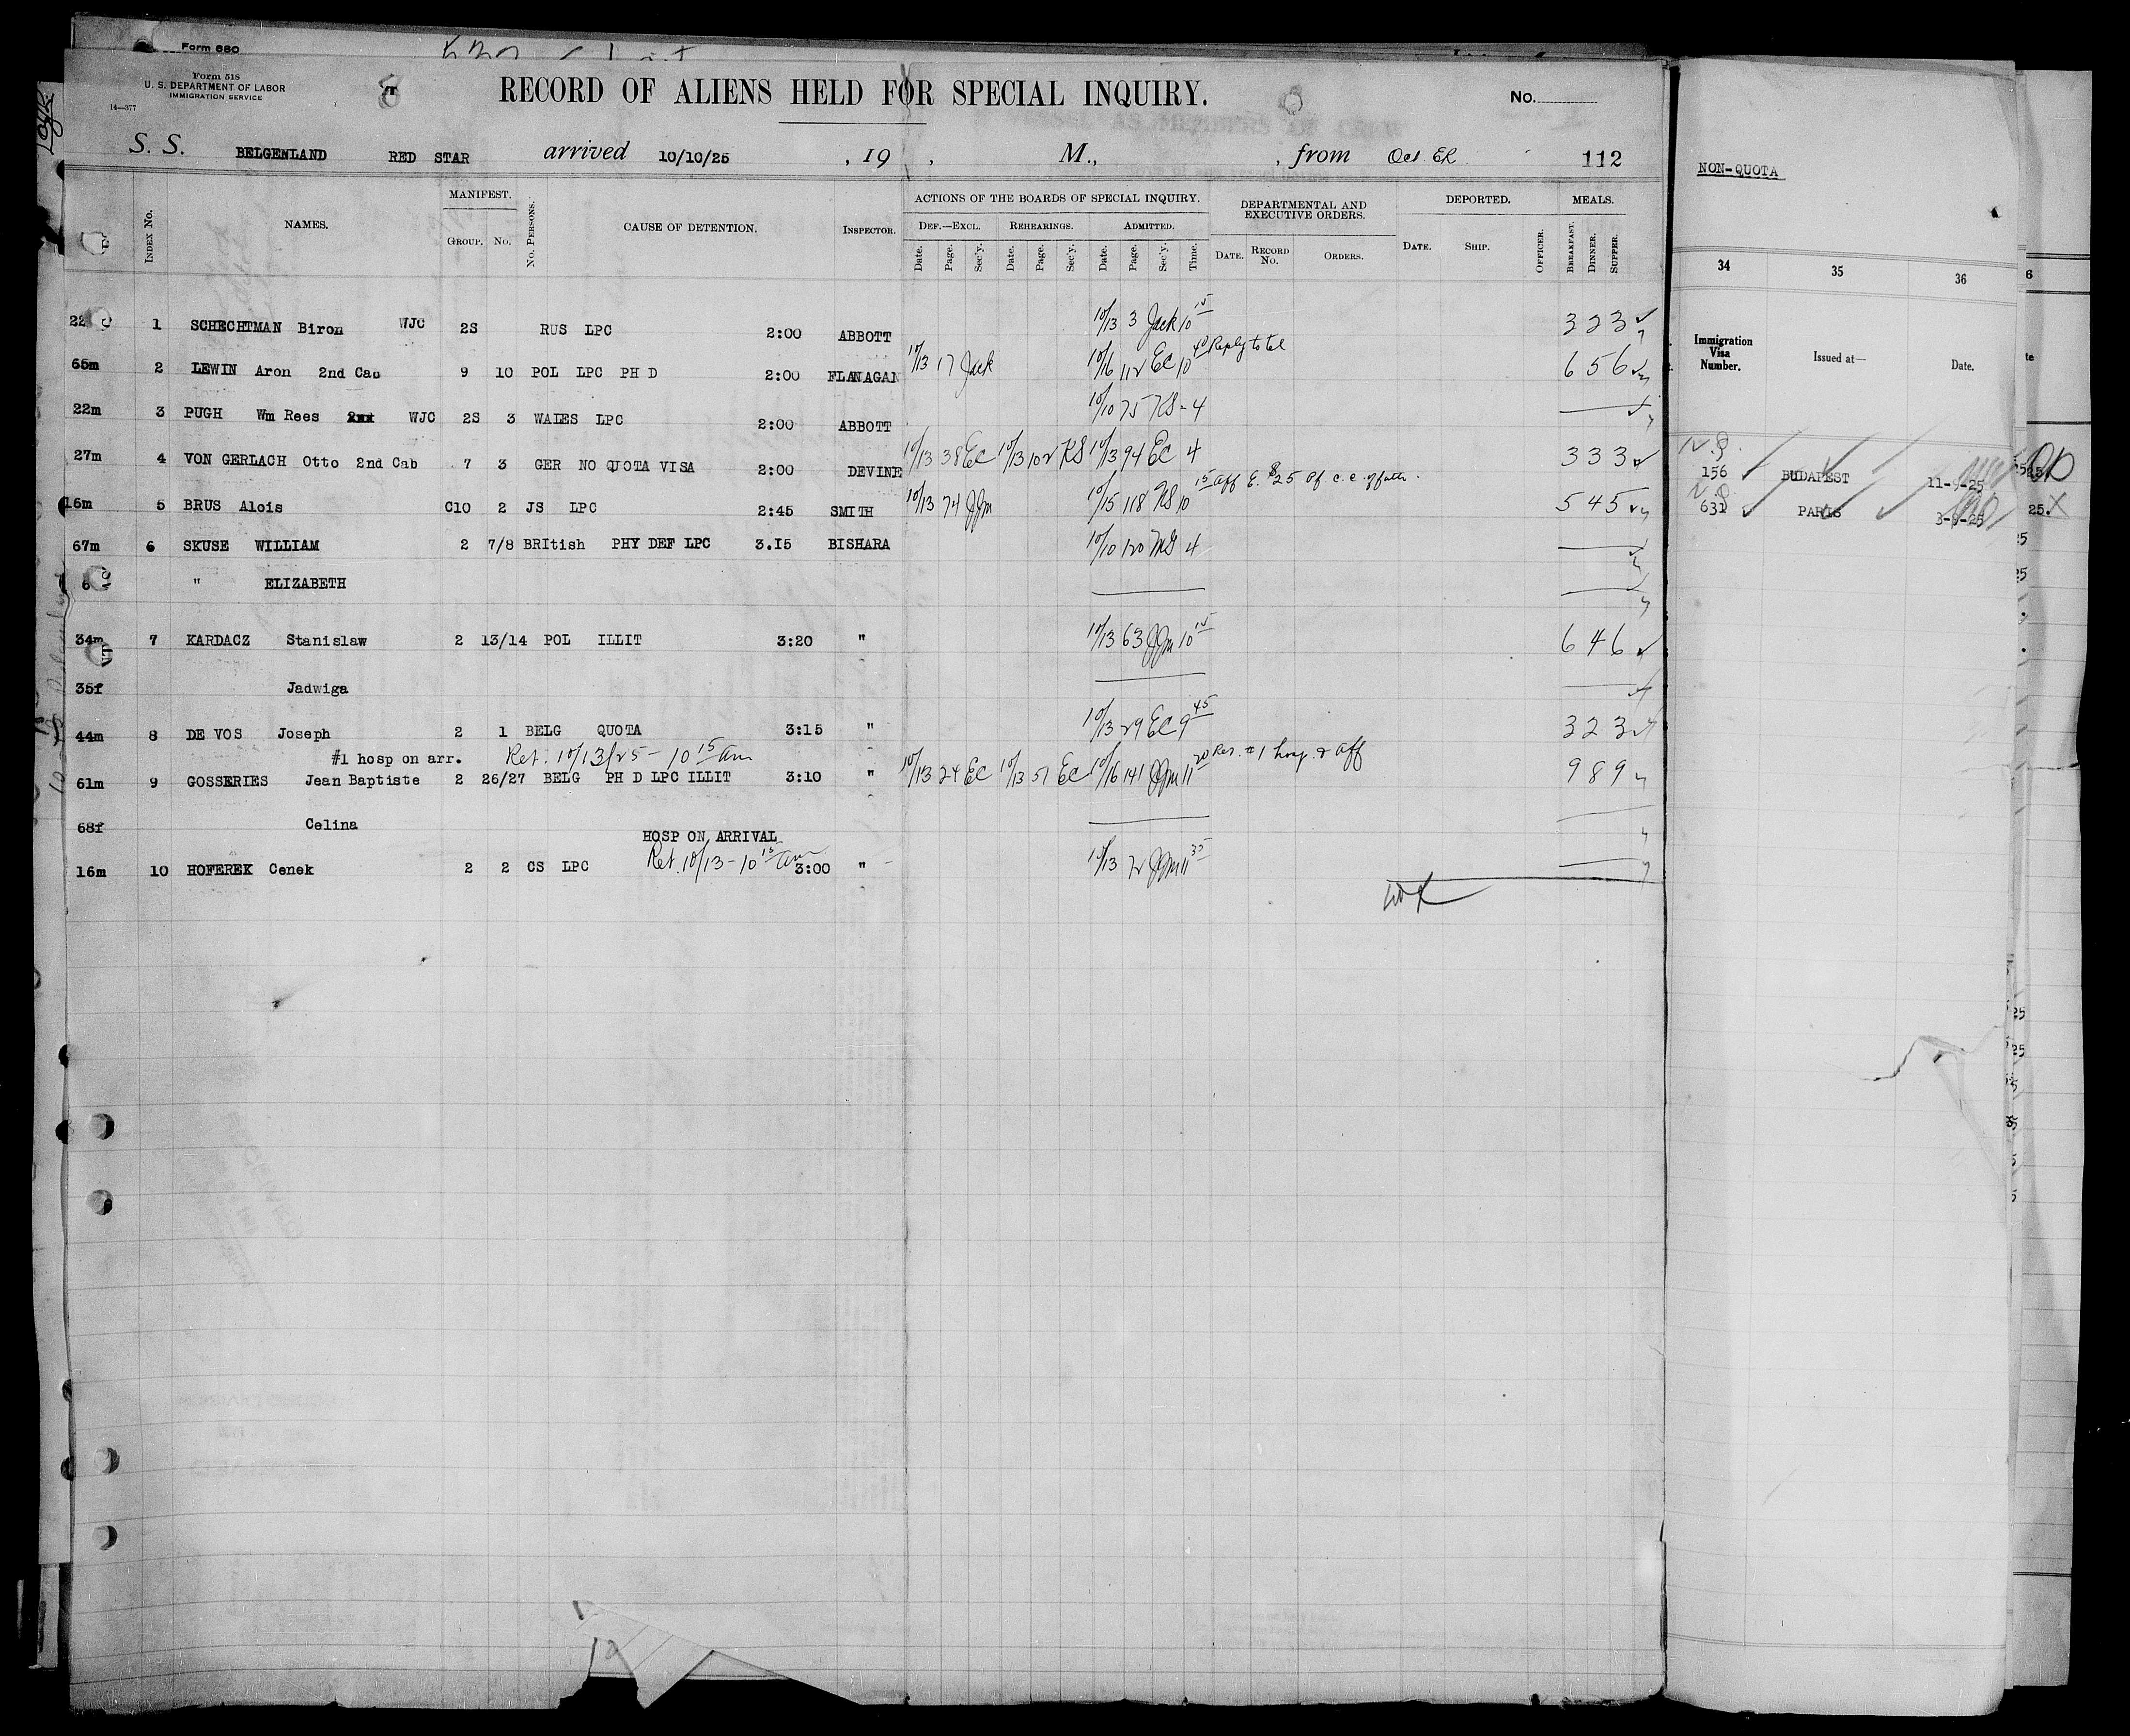 Form 680
Form 518
U. S. DEPARTMENT OF LABOR
IMMIGRATION SERVICE
14—377
RECORD OF ALIENS HELD FOR SPECIAL INQUIRY.
No.
S. S. BELGENLAND RED STAR arrived 10/10/25 , 19 , M., , from 112
INDEX No.
NAMES.
MANIFEST.
GROUP. No.
No. PERSONS.
CAUSE OF DETENTION.
INSPECTOR.
ACTIONS OF THE BOARDS OF SPECIAL INQUIRY.
DEF.—EXCL. REHEARINGS. ADMITTED.
Date. Page. Sec'y. Date. Page. Sec'y. Date. Page. Sec'y. Time.
DEPARTMENTAL AND EXECUTIVE ORDERS.
DATE. RECORD No. ORDERS.
DEPORTED.
DATE. SHIP. OFFICER.
MEALS.
BREAKFAST. DINNER. SUPPER.
22 1 SCHECHTMAN Biron WJC 2S RUS LPC 2:00 ABBOTT 10/13 3 Jack 10 15 3 2 3
65m 2 LEWIN Aron 2nd Cab 9 10 POL LPC PH D 2:00 FLANAGAN 10/13 17 Jack 10/16 112 EC 10 40 Reply to tel 6 5 6
22m 3 PUGH Wm Rees WJC 2S 3 WALES LPC 2:00 ABBOTT 10/10 75 KS - 4
27m 4 VON GERLACH Otto 2nd Cab 7 3 GER NO QUOTA VISA 2:00 DEVINE 10/13 38 EC 10/13 102 KS 10/13 94 EC 4 3 3 3
16m 5 BRUS Alois C10 2 JS LPC 2:45 SMITH 10/13 74 JJm 10/15 118 KS 10 15 aff E. $25 5 4 5
67m 6 SKUSE WILLIAM 2 7/8 BRItish PHY DEF LPC 3.15 BISHARA 10/10 120 4
" ELIZABETH
34m 7 KARDACZ Stanislaw 2 13/14 POL ILLIT 3:20 " 10/13 63 JJm 10 15 6 4 6
35f Jadwiga
44m 8 DE VOS Joseph 2 1 BELG QUOTA 3:15 " 10/13 29 EC 9 45 3 2 3
#1 hosp on arr. Ret. 10/13/25 - 10 15 am
61m 9 GOSSERIES Jean Baptiste 2 26/27 BELG PH D LPC ILLIT 3:10 " 10/13 24 EC 10/13 51 EC 10/16 141 JJm 11 20 Res. #1 hosp. & aff 9 8 9
68f Celina
HOSP ON ARRIVAL
Ret. 10/13 - 10 15 am
16m 10 HOFEREK Cenek 2 2 CS LPC 3:00 " 10/13 2 JJm 11 35
NON-QUOTA
34 35 36
Immigration Visa Number.
Issued at—
Date.
156 BUDAPEST
631 PARIS